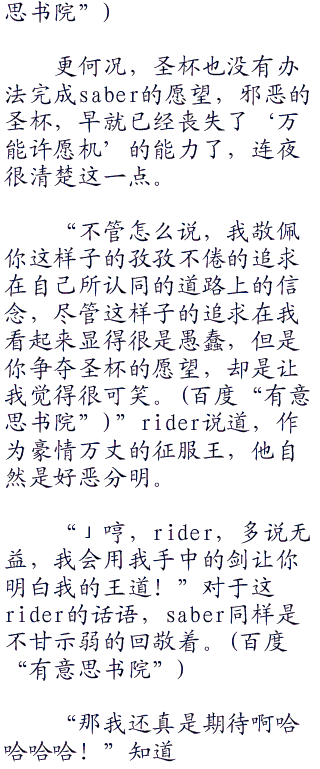 思书院”)
更何况，圣杯也没有办
法完成saber的愿望，邪恶的
圣杯，早就已经丧失了‘万
能许愿机’的能力了，连夜
很清楚这一点。
“不管怎么说，我敬佩
你这样子的孜孜不倦的追求
在自己所认同的道路上的信
念，尽管这样子的追求在我
看起来显得很是愚蠢，但是
你争夺圣杯的愿望，却是让
我觉得很可笑。(百度“有意
思书院”)”rider说道，作
为豪情万丈的征服王，他自
然是好恶分明。
“」哼，rider，多说无
益，我会用我手中的剑让你
明白我的王道！”对于这
rider的话语，saber同样是
不甘示弱的回敬着。(百度
“有意思书院”)
“那我还真是期待啊哈
哈哈哈！”知道